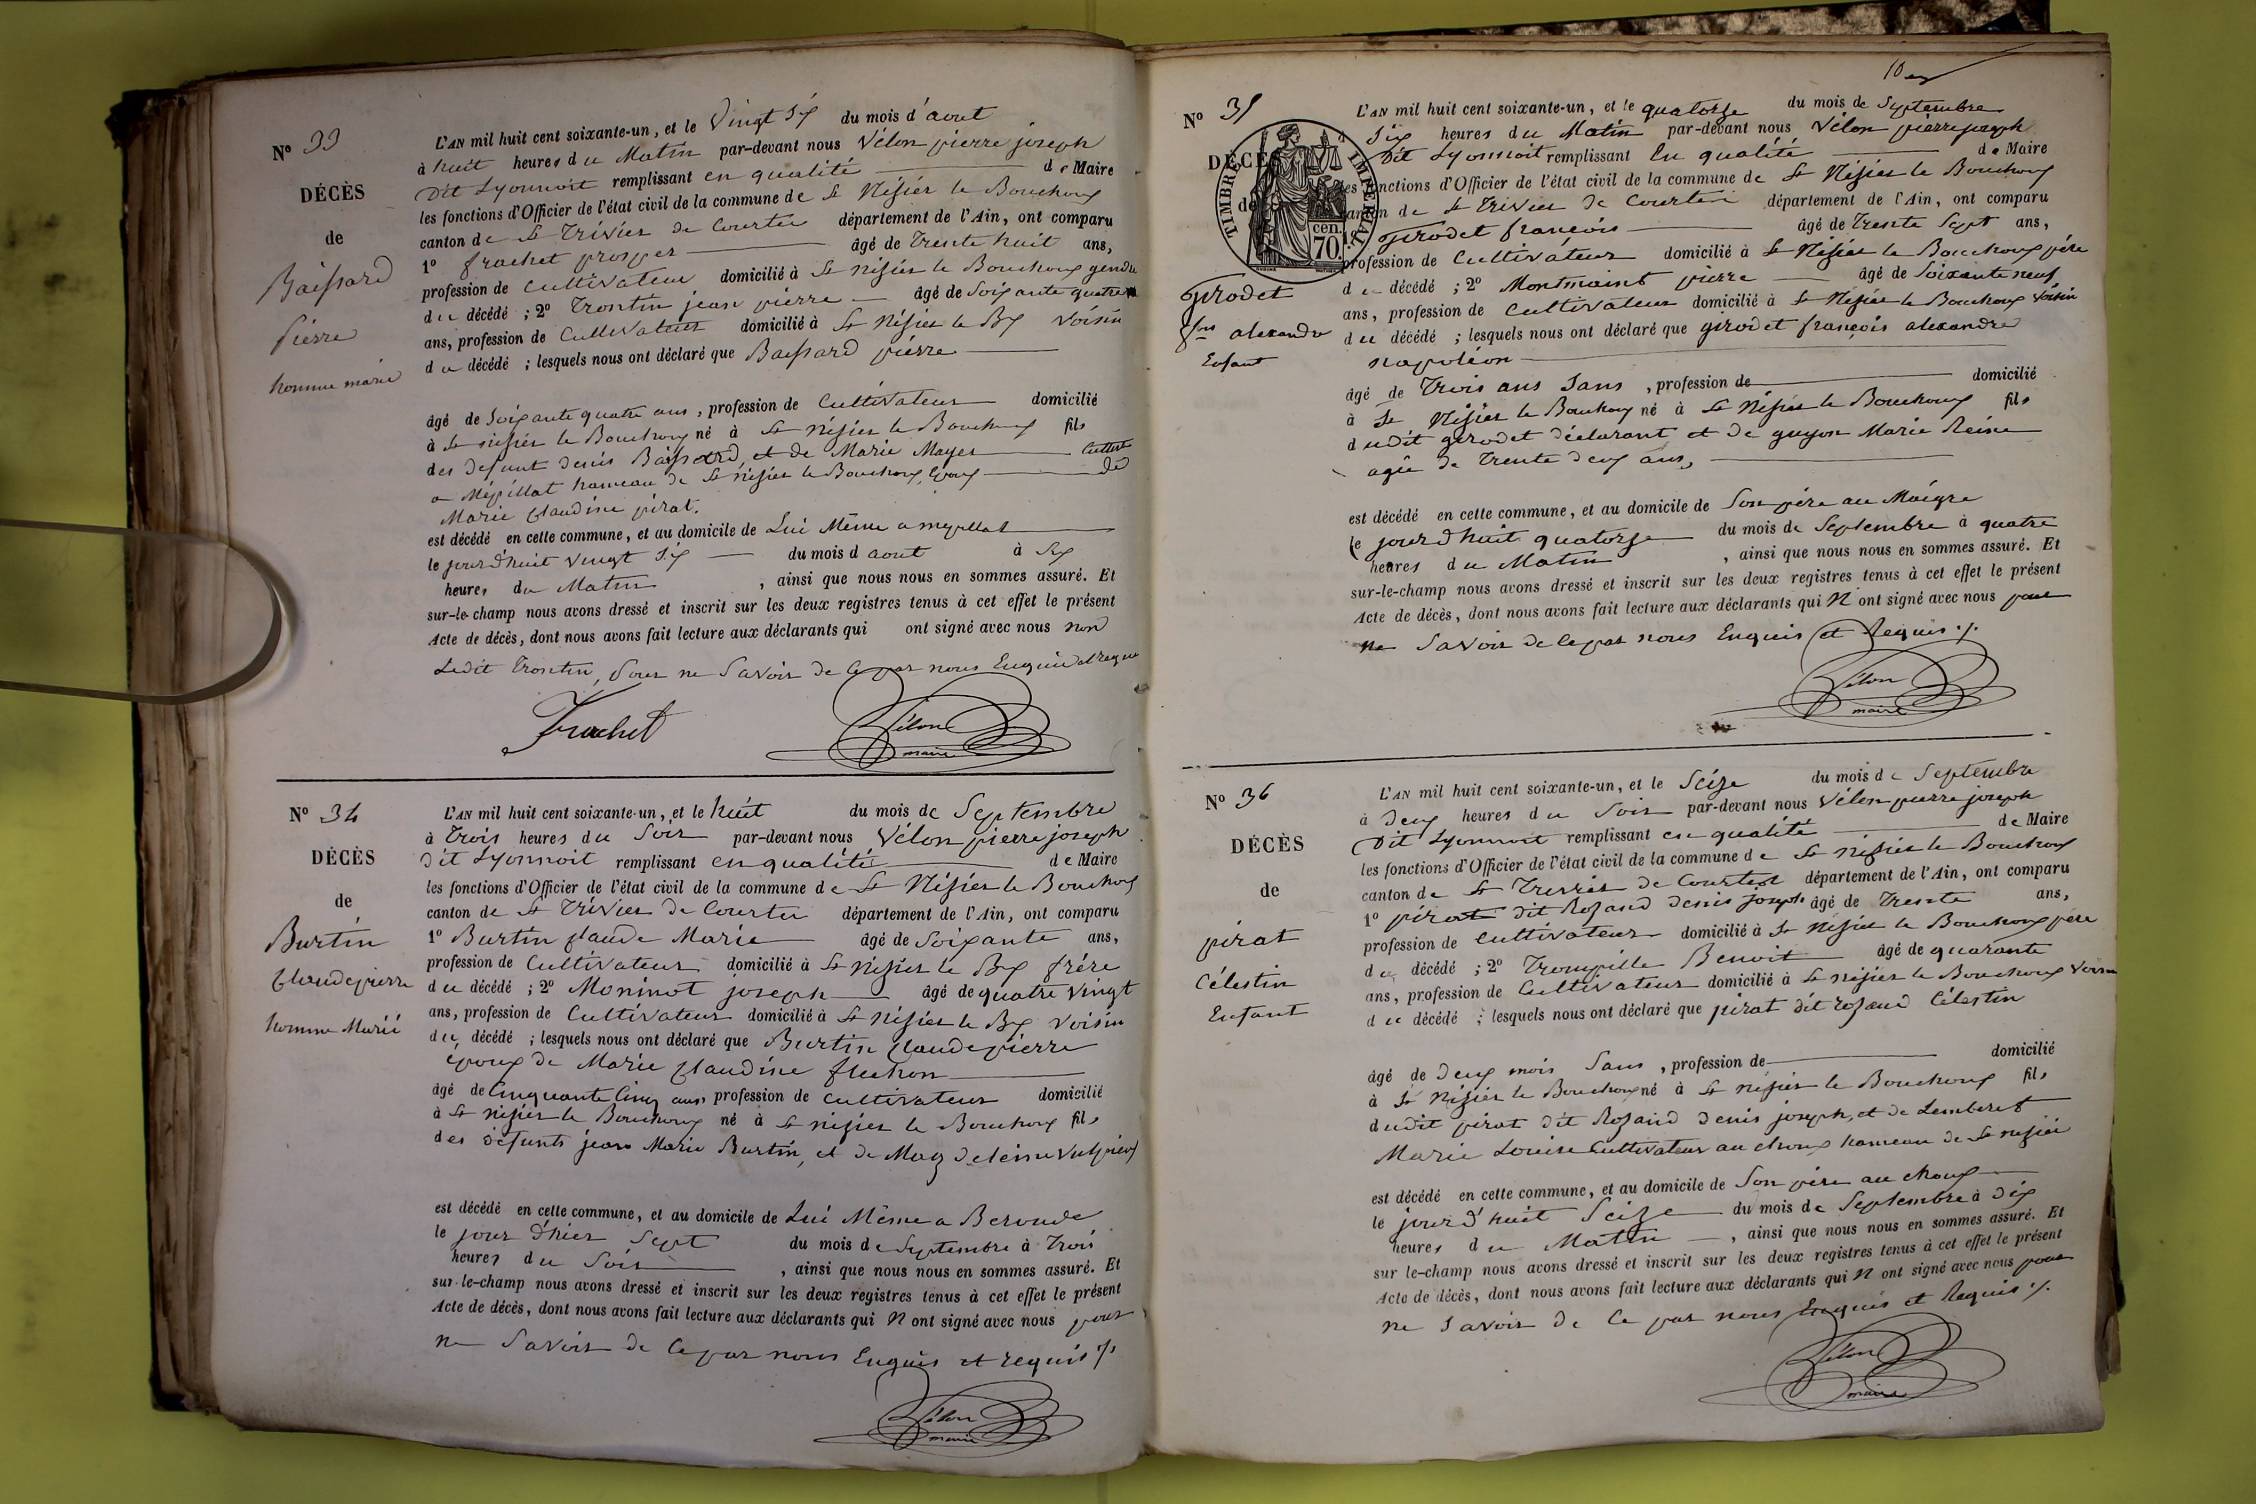 N° 33
DÉCÈS
de
Baissard
Pierre
homme marié
L'AN mil huit cent soixante-un, et le Vingt Six du mois d'aout
à huit heures du Matin par-devant nous Vélon pierre joseph
Dit Lyonnoit remplissant en qualité de Maire
les fonctions d'Officier de l'état civil de la commune de St Nisier le Bouchoux
canton de St Trivier de Courte département de l'Ain, ont comparu
1° frachet prosper âgé de Trente huit ans,
profession de Cultivateur domicilié à St nisier le Bouchoux gendre
du décédé ; 2° Trontin jean pierre âgé de Soixante quatre
ans, profession de Cultivateur domicilié à St Nisier le Bx Voisin
du décédé ; lesquels nous ont déclaré que Baissard pierre
âgé de Soixante quatre ans, profession de Cultivateur domicilié
à St nisier le Bouchoux né à St Nisier le Bouchoux fils
des defunt denis Baissard, et de Marie Mayer Cultivt
a Mépillat hameau de St Nisier le Bouchoux, Epoux de
Marie Claudine pirat.
est décédé en cette commune, et au domicile de Lui Même a mepillat
le jourd'huit vingt Six du mois d aout à Six
heures du Matin , ainsi que nous nous en sommes assuré. Et
sur-le-champ nous avons dressé et inscrit sur les deux registres tenus à cet effet le présent
Acte de décès, dont nous avons fait lecture aux déclarants qui ont signé avec nous non
Ledit Trontin, pour ne Savoir de Ce par nous Enquis et requis
Frachet
Vélon
maire
N° 34
DÉCÈS
de
Burtin
Claude pierre
homme Marié
L'AN mil huit cent soixante-un, et le huit du mois de Septembre
à Trois heures du Soir par-devant nous Vélon pierre joseph
Dit Lyonnoit remplissant en qualité de Maire
les fonctions d'Officier de l'état civil de la commune de St Nisier le Bouchoux
canton de St Trivier de Courte département de l'Ain, ont comparu
1° Burtin Claude Marie âgé de Soixante ans,
profession de Cultivateur domicilié à St Nisier le Bx frère
du décédé ; 2° Moninot joseph âgé de quatre Vingt
ans, profession de Cultivateur domicilié à St Nisier le Bx Voisin
du décédé ; lesquels nous ont déclaré que Burtin Claude pierre
époux de Marie Claudine fléchon
âgé de Cinquante Cinq ans, profession de Cultivateur domicilié
à St nisier le Bouchoux né à St nisier le Bouchoux fils
des défunts jean Marie Burtin, et de Magdeleine
est décédé en cette commune, et au domicile de Lui Même a Beronde
le jour d'hier Sept du mois de Septembre à Trois
heures du Soir , ainsi que nous nous en sommes assuré. Et
sur-le-champ nous avons dressé et inscrit sur les deux registres tenus à cet effet le présent
Acte de décès, dont nous avons fait lecture aux déclarants qui N ont signé avec nous pour
ne Savoir de Ce par nous Enquis et requis ./.
Vélon
maire
10
N° 35
DÉCÈS
de
TIMBRE IMPERIAL
70 cen.
Girodet
fois alexandre
Enfant
L'AN mil huit cent soixante-un, et le quatorze du mois de Septembre
Six heures du Matin par-devant nous Vélon pierre joseph
Dit Lyonnoit remplissant En qualité de Maire
les fonctions d'Officier de l'état civil de la commune de St Nisier le Bouchoux
canton de St Trivier de Courte département de l'Ain, ont comparu
1° Girodet françois âgé de Trente Sept ans,
profession de Cultivateur domicilié à St Nisier le Bouchoux père
du décédé ; 2° Montmaint pierre âgé de Soixante neuf
ans, profession de Cultivateur domicilié à St Nisier le Bouchoux Voisin
du décédé ; lesquels nous ont déclaré que girodet françois alexandre
napoléon
âgé de Trois ans Sans , profession de domicilié
à St Nisier le Bouchoux né à St Nisier le Bouchoux fils
dudit girodet déclarant et de guyon Marie Reine
agée de Trente deux ans,
est décédé en cette commune, et au domicile de Son père au Maigre
le jourd'huit quatorze du mois de Septembre à quatre
heures du Matin , ainsi que nous nous en sommes assuré. Et
sur-le-champ nous avons dressé et inscrit sur les deux registres tenus à cet effet le présent
Acte de décès, dont nous avons fait lecture aux déclarants qui N ont signé avec nous pour
ne Savoir de Ce par nous Enquis et Requis ./.
Vélon
maire
N° 36
DÉCÈS
de
pirat
Célestin
Enfant
L'AN mil huit cent soixante-un, et le Seize du mois de Septembre
à Deux heures du Soir par-devant nous Vélon pierre joseph
Dit Lyonnoit remplissant en qualité de Maire
les fonctions d'Officier de l'état civil de la commune de St nisier le Bouchoux
canton de St Trivier de Courte département de l'Ain, ont comparu
1° pirat dit Rozand Denis joseph âgé de Trente ans,
profession de Cultivateur domicilié à St Nisier le Bouchoux père
du décédé ; 2° Trompille Benoit âgé de quarante
ans, profession de Cultivateur domicilié à St nisier le Bouchoux Voisin
du décédé ; lesquels nous ont déclaré que pirat dit rozand Célestin
âgé de Deux mois Sans , profession de domicilié
à St Nisier le Bouchoux né à St nisier le Bouchoux fils
dudit pirat dit Rozand Denis joseph, et de Lemberet
Marie Louise Cultivateur au choux hameau de St nisier
est décédé en cette commune, et au domicile de Son père au choux
le jourd'huit Seize du mois de Septembre à Dix
heures du Matin , ainsi que nous nous en sommes assuré. Et
sur le-champ nous avons dressé et inscrit sur les deux registres tenus à cet effet le présent
Acte de décès, dont nous avons fait lecture aux déclarants qui N ont signé avec nous pour
ne Savoir de Ce par nous Enquis et Requis ./.
Vélon
maire